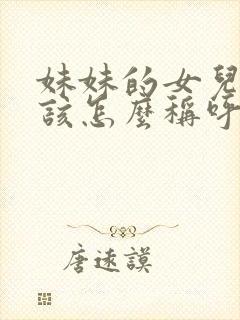 妹妹的女兒
該怎麼稱呼
唐遠謨